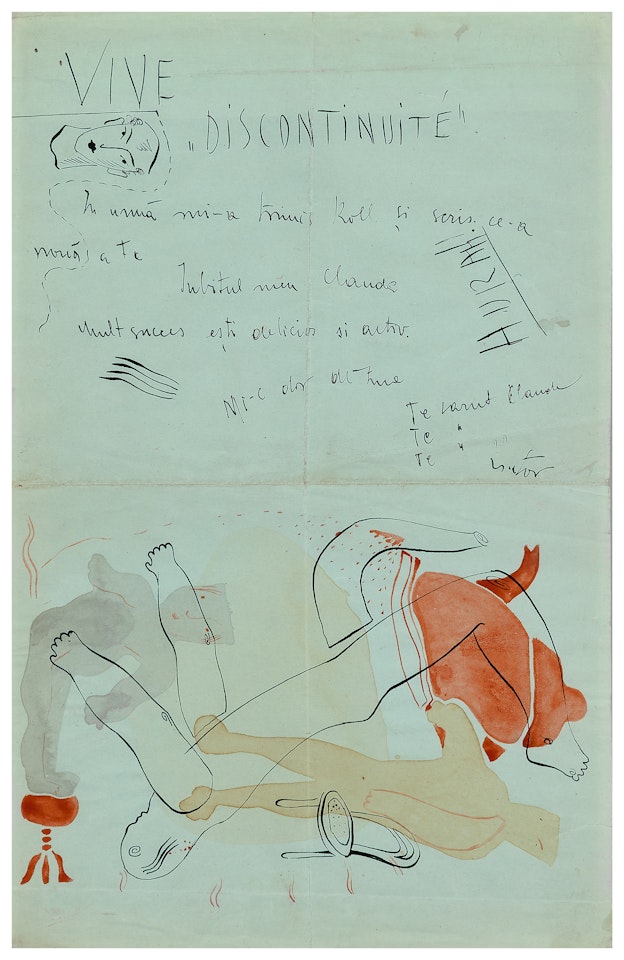 VIVE
„DISCONTINUITÉ".
În urmă mi-a trimis Koll și scris ce-a
a Te
HURAH!
Iubitul meu Claude
Mult succes ești delicios si activ.
Mi-e dor de tine
Te sarut Claude
Te "
Te " Victor